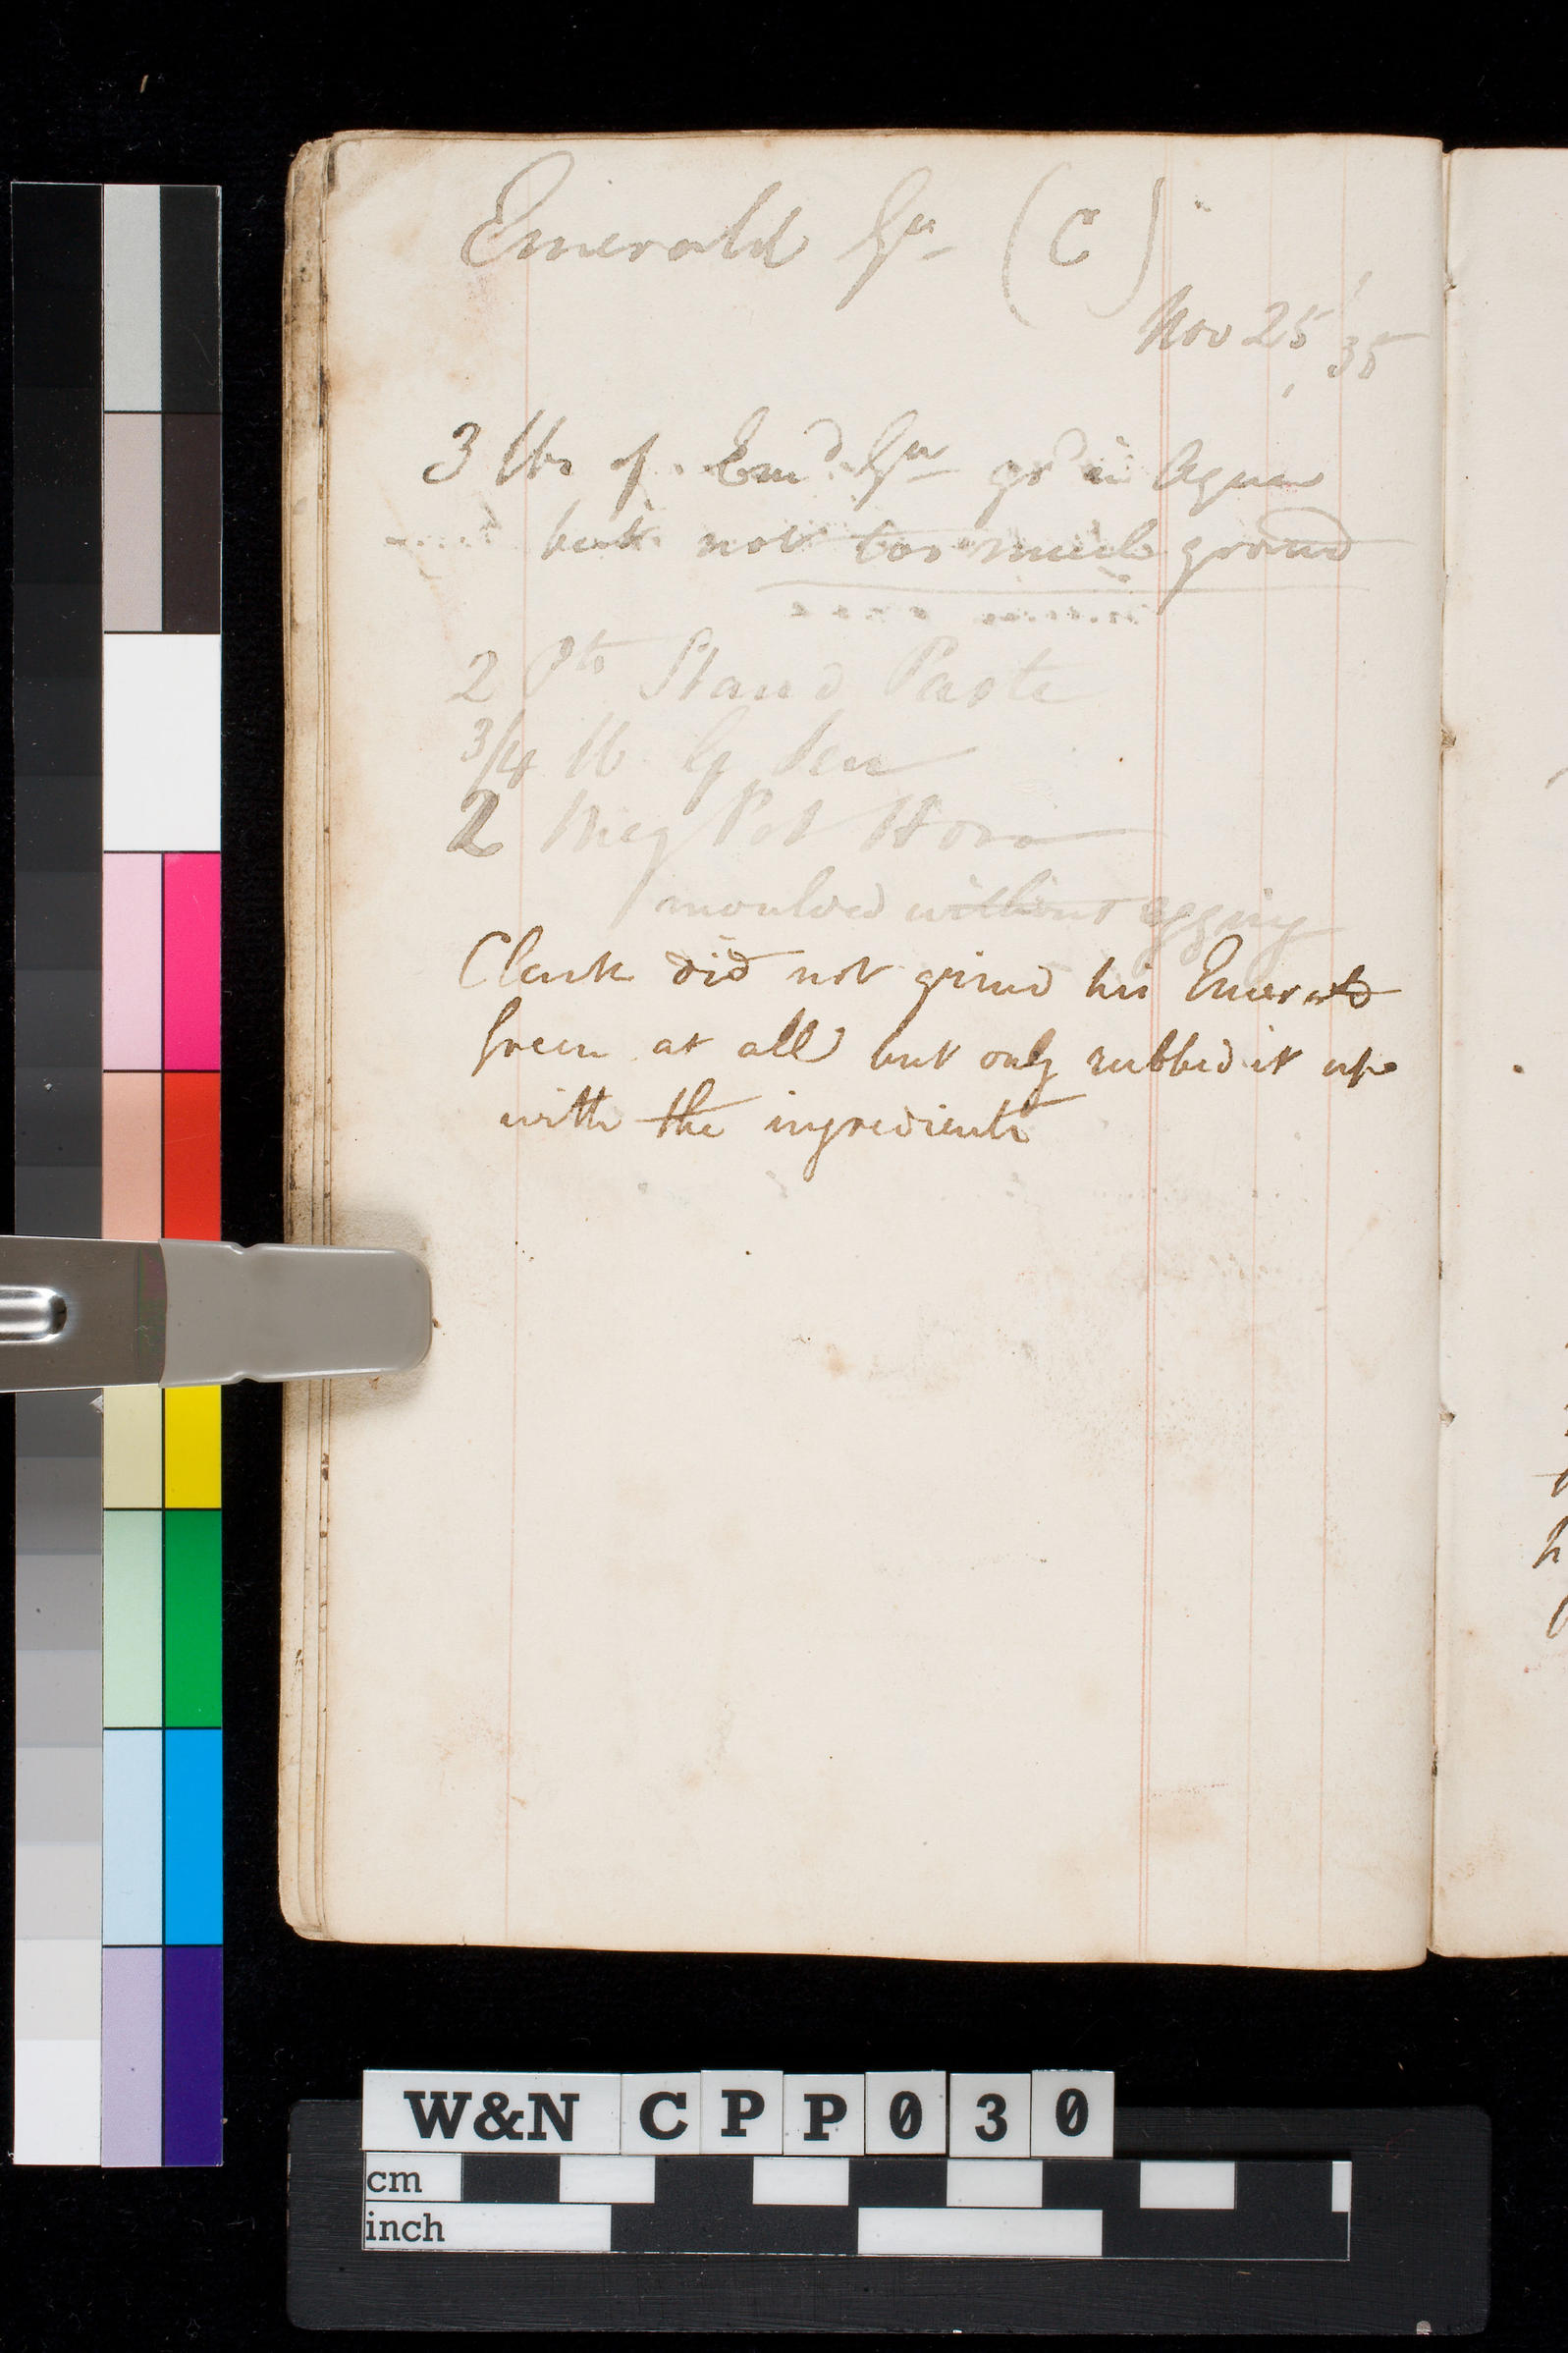 Emerald Gn (C)
Nov 25, '35
3 lbs of Emd Gn grd in Aqua
but not too much ground
2 Pts Stand Paste
3/4 lb G Sen
2 Meg Pot Hora
moulded without egging
Clark did not grind his Emerald
Green at all but only rubbed it up
with the ingredients
W&N CPP030
cm
inch